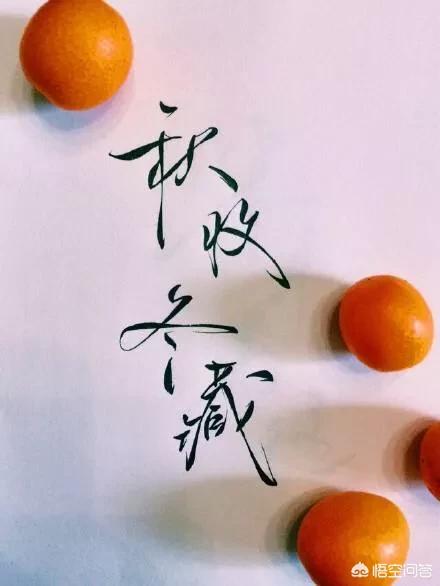 秋收
冬藏
悟空问答